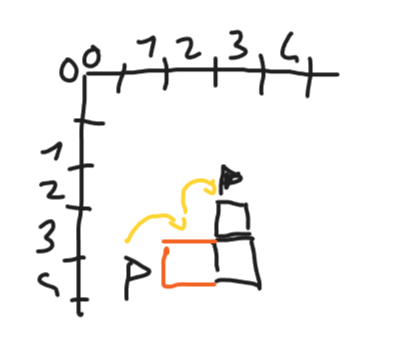 0
0 1 2 3 4
1
2
3
4